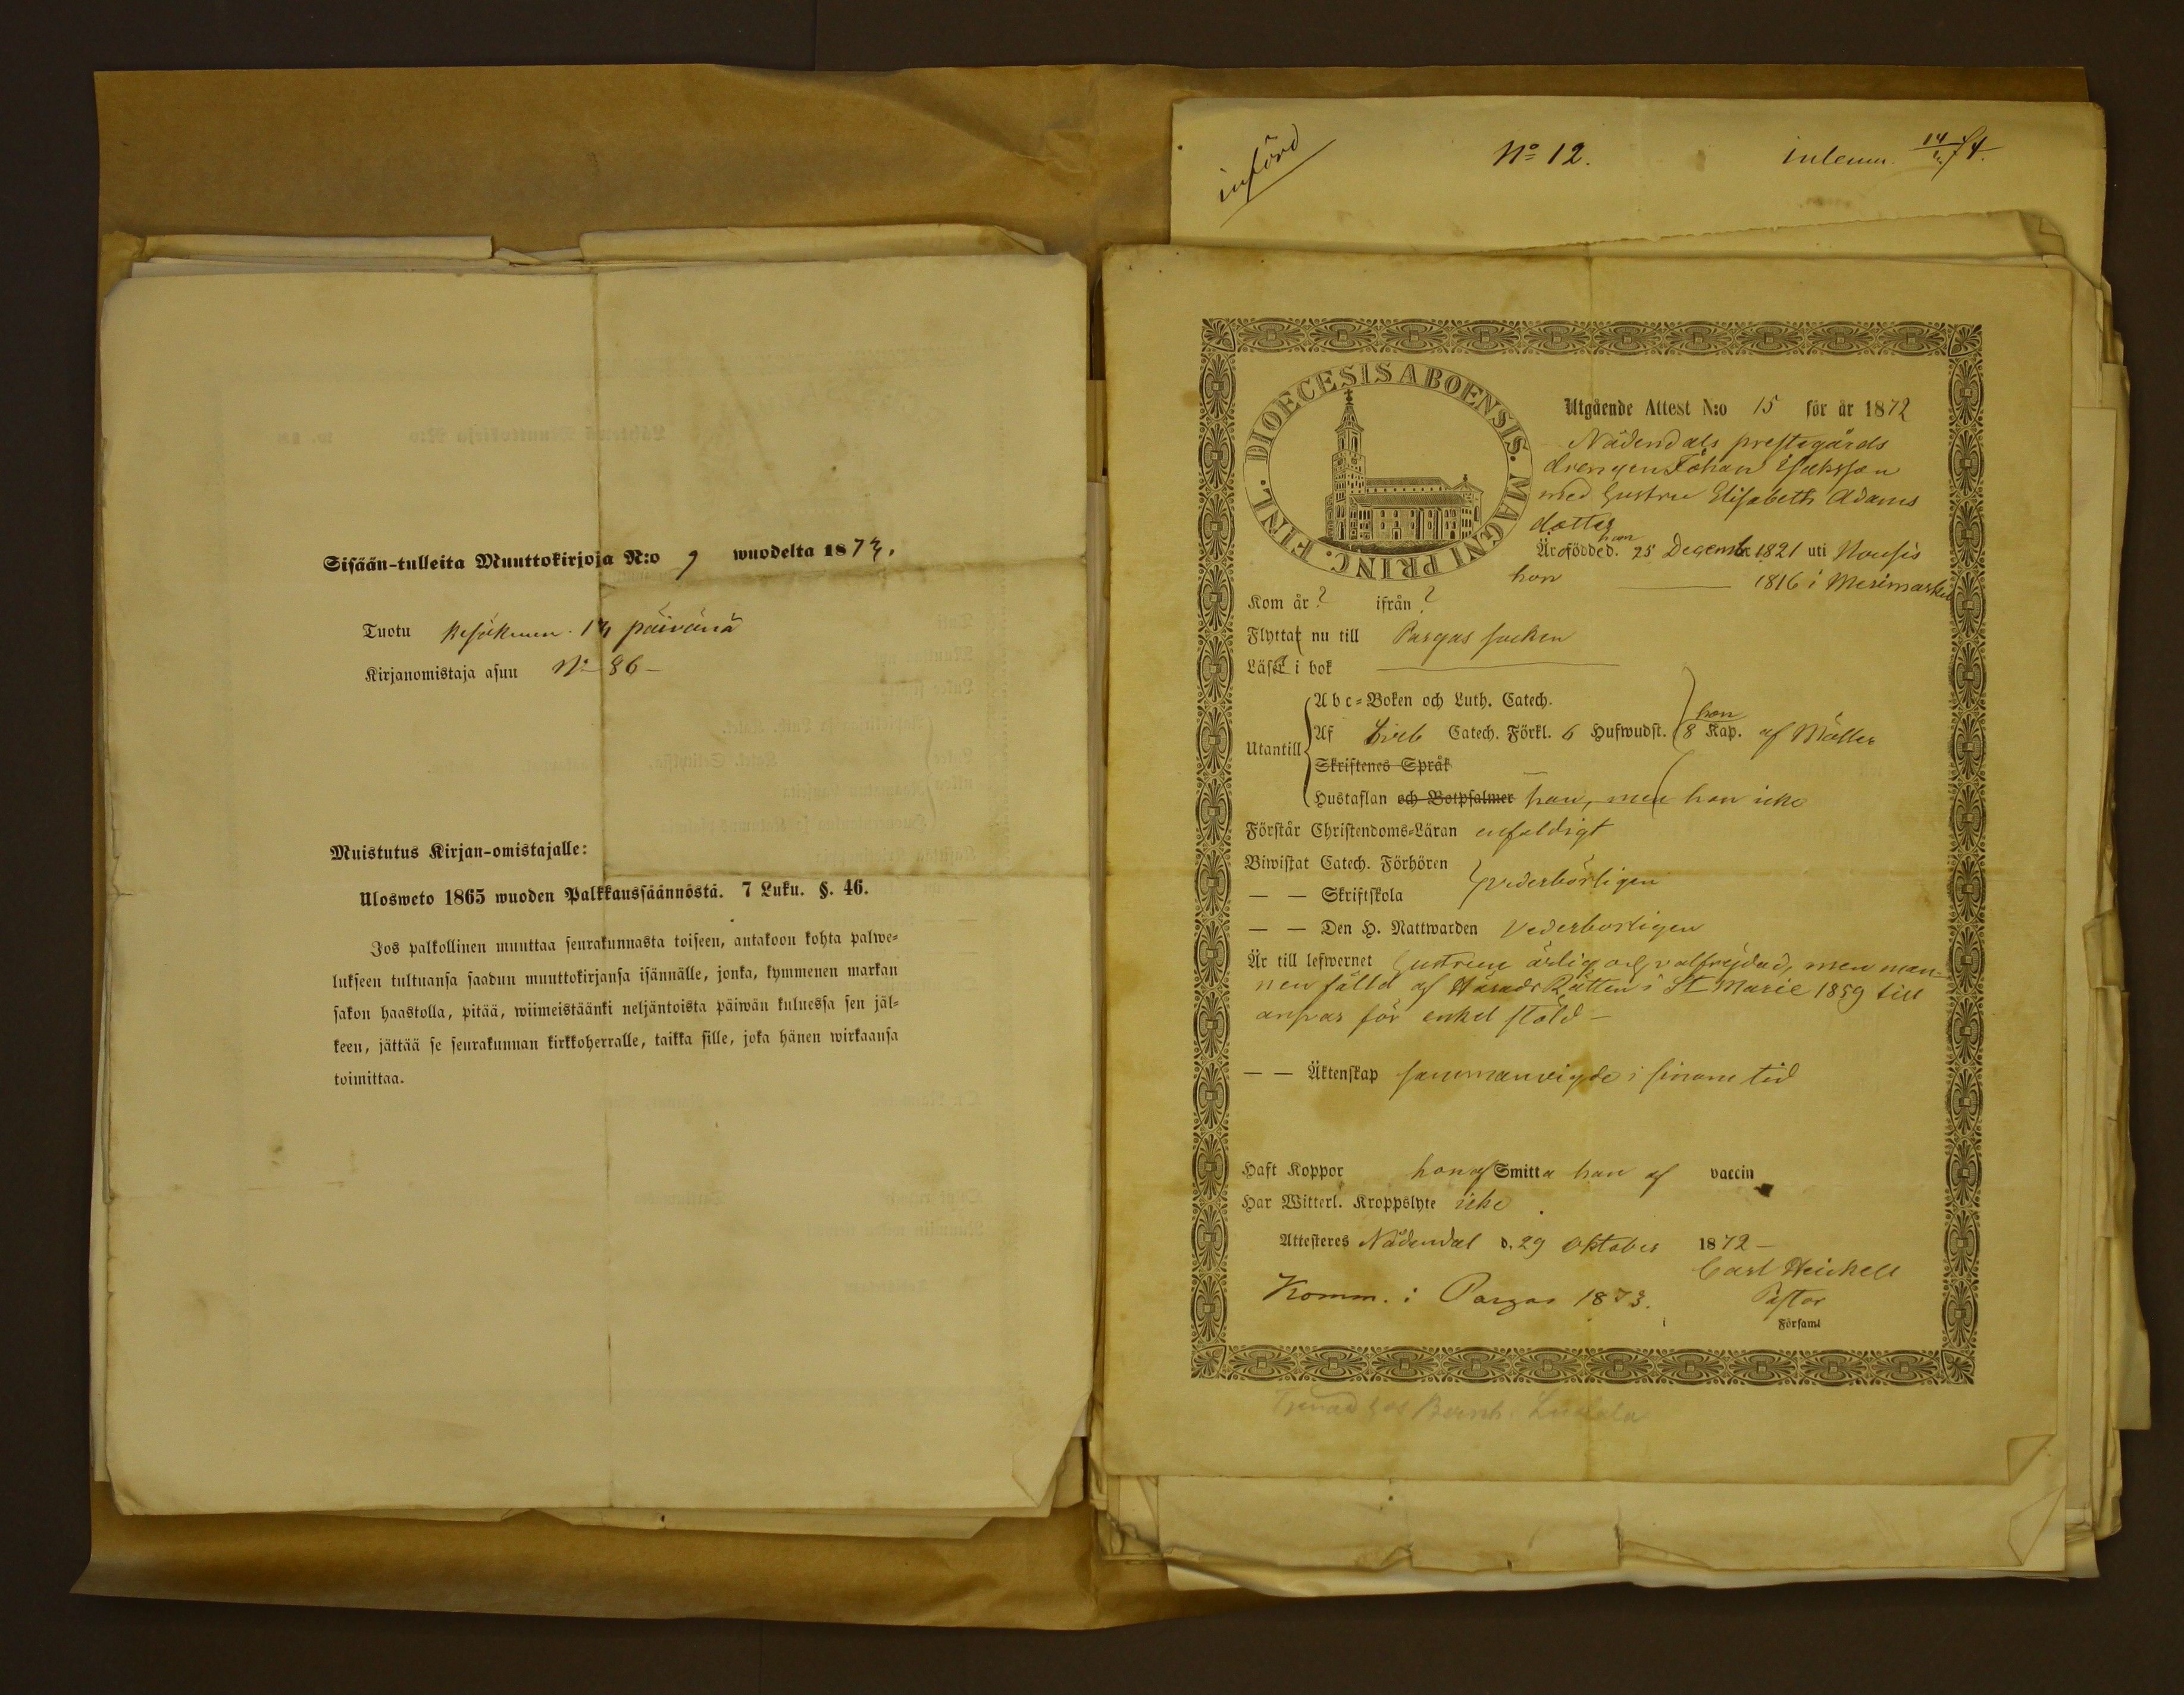 Sisään-tulleita Muuttokirjoja N:o 9 wuodelta 1873.
Tuotu Kesäkuun 14 päivänä
Kirjanomistaja asuu No 86 –
Muistutus Kirjan-omistajalle:
Ulosweto 1865 wuoden Palkkaussäännöstä. 7 Luku. §. 46.
Jos palkollinen muuttaa seurakunnasta toiseen, antakoon kohta palwe=
lukseen tultuansa saadun muuttokirjansa isännälle, jonka, kymmenen markan
sakon haastolla, pitää, wiimeistäänki neljäntoista päiwän kuluessa sen jäl=
keen, jättää se seurakunnan kirkkoherralle, taikka sille, joka hänen wirkaansa
toimittaa.
införd
No 12.
inlemn. 14/74.
DIOECESIS ABOENSIS. MAGNI PRINC. FINL.
Utgående Attest N:o 15 för år 1872
Nådendals prestegårds
drengen Johan Isaksson
med hustru Elisabeth Adams
dotter
Äro födde han d. 25 Decemb. 1821 uti Nousis
hon — 1816 i Merimasku
Kom år ? ifrån ?
Flytta nu till Pargas socken
Läsa i bok —
Utantill
Abc=Boken och Luth. Catech.
Af Sveb Catech. Förkl. 6 Hufwudst. hon 8 Kap. af Möller
Skriftenes Språk
Hustaflan och Botpsalmer han, men hon icke
Förstår Christendoms=Läran enfaldigt
Biwistat Catech. Förhören
— — Skriftskola vederbörligen
— — Den H. Nattwarden vederbörligen
Är till lefwernet hustrun ärlig och välfrejdad, men man-
nen fälld af Härads Rätten i St Marie 1859 till
ansvar för enkel stöld –
— — Äktenskap sammanvigde i sinom tid
Haft Koppor hon af Smitta han af vaccin
Har Witterl. Kroppslyte icke
Attesteres Nådendal d. 29 Oktober 1872 –
Carl Heickell
Pastor
Komm. i Pargas 1873.
i Församl
Tjenad hos Bernh.